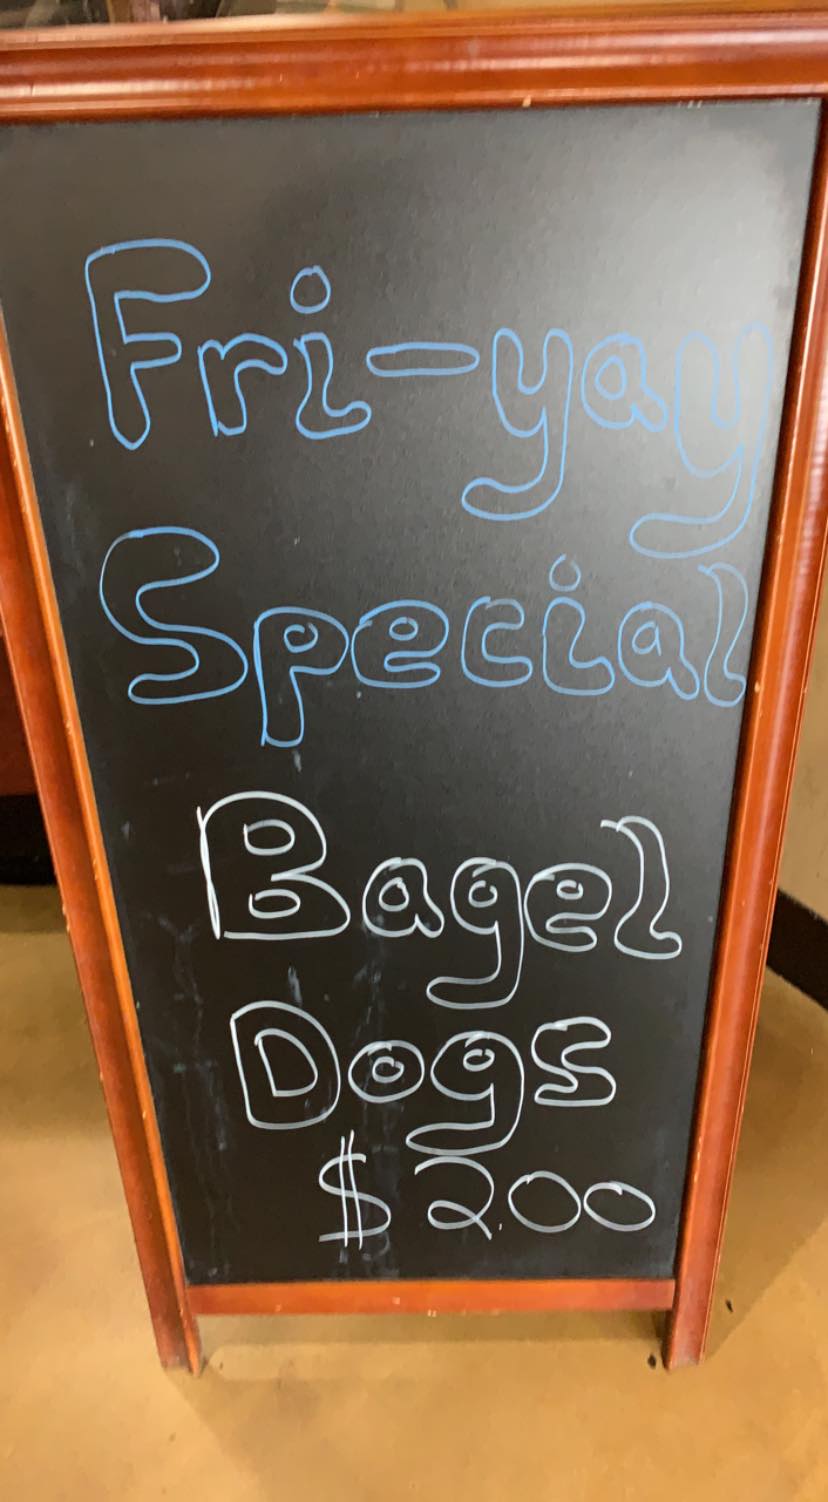 Fri-yay
Special
Bagel
Dogs
$2.00